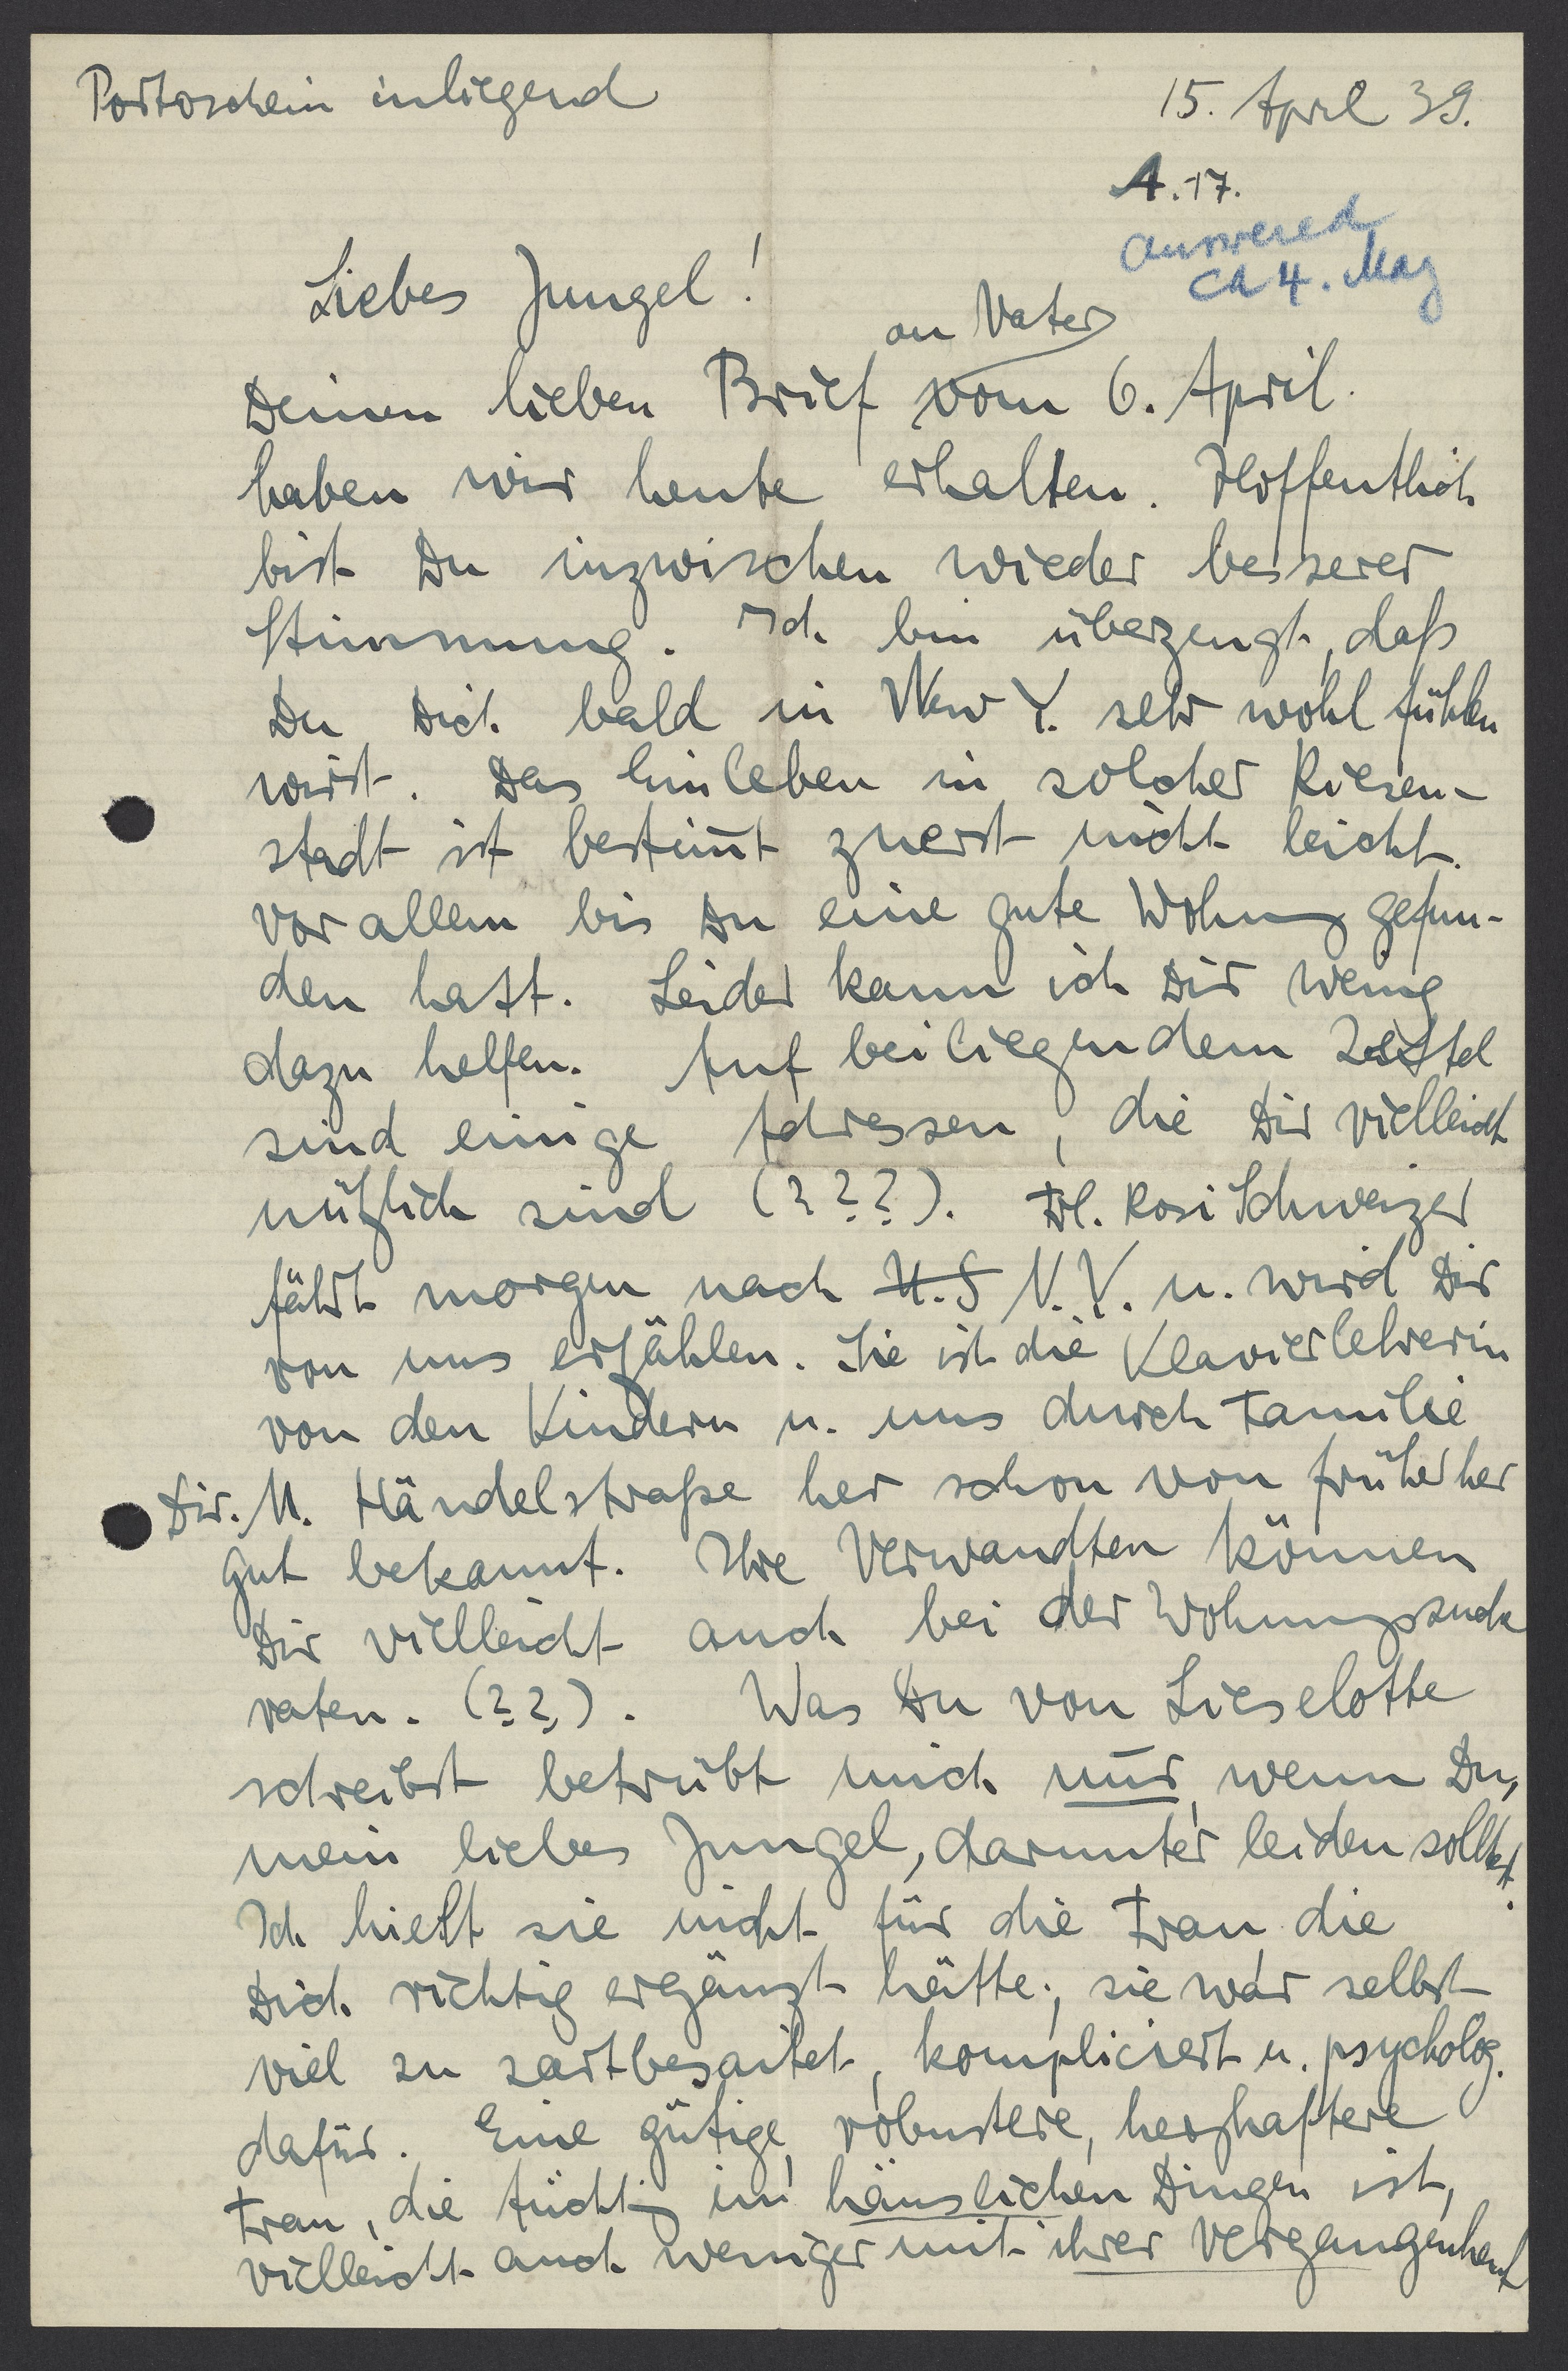 Portoschein inliegend
15. April 39.
A.17.
answered
ca 4. May
Liebes Jungel!
an Vater
Deinen lieben Brief vom 6. April
haben wir heute erhalten. Hoffentlich
bist Du inzwischen wieder besserer
Stimmung. Ich bin überzeugt, daß
Du Dich bald in New Y. sehr wohl fühlen
wirst. Das Einleben in solcher Riesen-
stadt ist bestim̄t zuerst nicht leicht.
vor allem bis Du eine gute Wohnung gefun-
den hast. Leider kann ich Dir wenig
dazu helfen. Auf beiliegendem Zettel
sind einige Adressen, die Dir vielleicht
nützlich sind (???). Frl. Rosi Schweizer
fährt morgen nach U.S N.Y. u. wird Dir
von uns erzählen. Sie ist die Klavierlehrerin
von den Kindern u. uns durch Familie
Dir. M. Händelstraße her schon von früher her
gut bekannt. Ihre Verwandten können
Dir vielleicht auch bei der Wohnungssuche
raten. (??). Was Du von Lieselotte
schreibst betrübt mich nur, wenn Du,
mein liebes Jungel, darunter leiden solltest.
Ich hielt sie nicht für die Frau die
Dich richtig ergänzt hätte; sie war selbst
viel zu zartbesaitet, kompliciert u. psycholog.
dafür. Eine gütige, robustere, herzhaftere
Frau, die tüchtig in häuslichen Dingen ist,
vielleicht auch weniger mit ihrer Vergangenheit